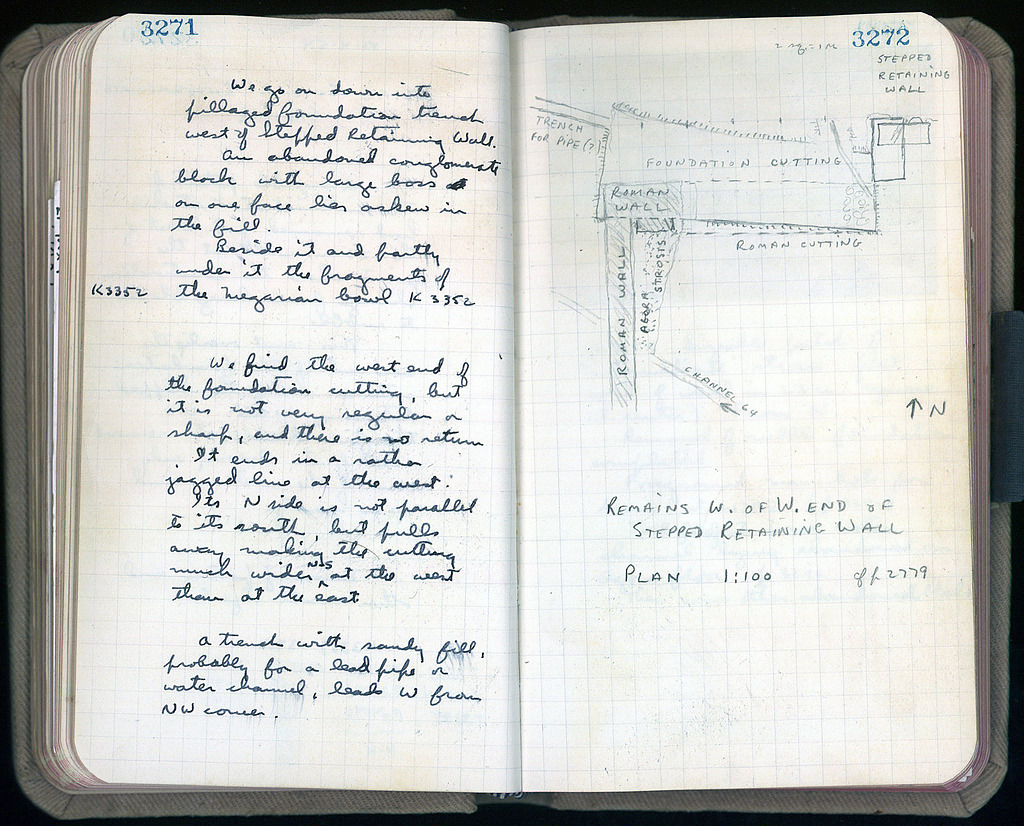 3271
We go on down into
pillaged foundation trench
west of Stepped Retaining Wall.
An abandoned conglomerate
block with large boss
on one face lies askew in
the fill.
Beside it and partly
under it the fragments of
K3352 the Megarian bowl K 3352
We find the west end of
the foundation cutting, but
it is not very regular or
sharp, and there is no return
It ends in a rather
jagged line at the west.
Its N side is not parallel
to its south, but pulls
away making the cutting
much wider N-S at the west
than at the east
A trench with sandy fill,
probably for a lead pipe or
water channel, leads W from
NW corner.
3272
2 sq. = 1 M
STEPPED
RETAINING
WALL
TRENCH
FOR PIPE (?)
FOUNDATION CUTTING
ROMAN
WALL
ROMAN CUTTING
ROMAN WALL
AGORA
STROSIS
CHANNEL 64
↑ N
REMAINS W. OF W. END OF
STEPPED RETAINING WALL
PLAN 1:100 cf p 2779